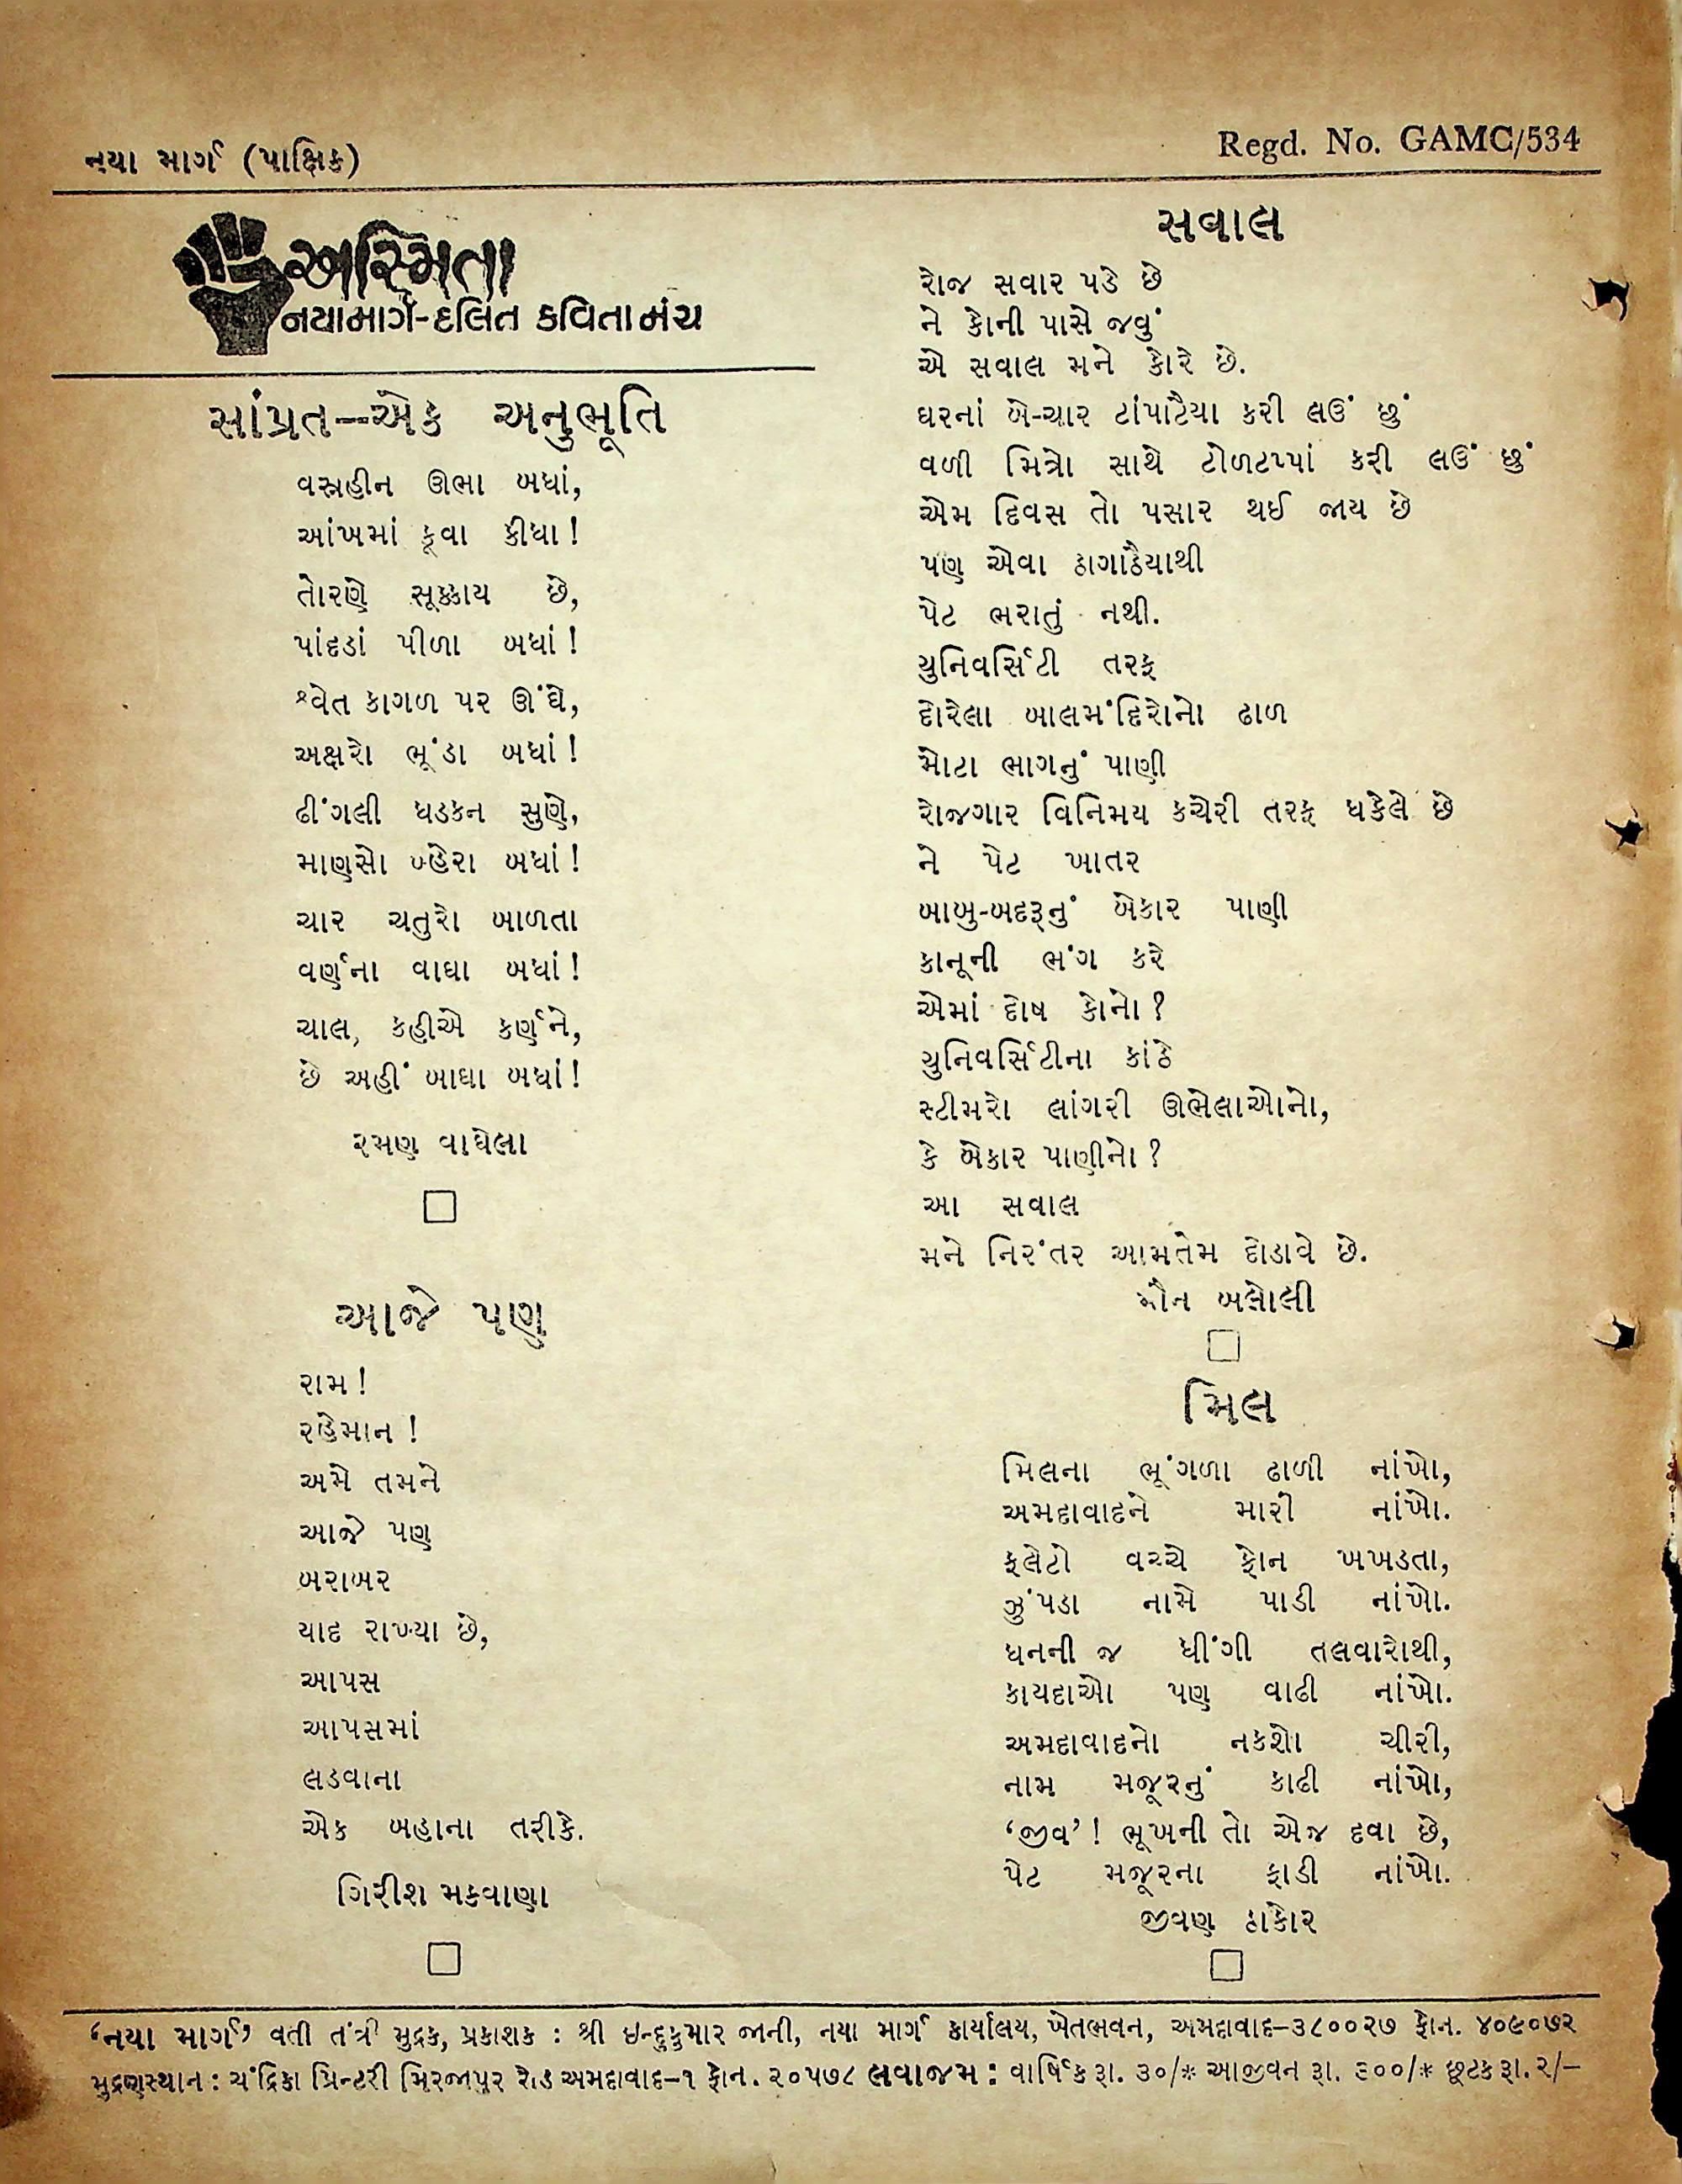 નયા માર્ગ (પાક્ષિક)
Regd. No. GAMC/534
અસ્મિતા
નયામાર્ગ-દલિત કવિતા મંચ
સાંપ્રત--એક અનુભૂતિ
વસ્ત્રહીન ઊભા બધાં,
આંખમાં કૂવા કીધા!
તોરણે સૂક્કાય છે,
પાંદડાં પીળા બધાં!
શ્વેત કાગળ પર ઊંઘે,
અક્ષરો ભૂંડા બધાં!
ઢીંગલી ધડકન સુણે,
માણસો બ્હેરા બધાં!
ચાર ચતુરો બાળતા
વર્ણના વાઘા બધાં!
ચાલ, કહીએ કર્ણને,
છે અહીં બાઘા બધાં!
રમણ વાઘેલા
આજે પણ
રામ!
રહેમાન!
અમે તમને
આજે પણ
બરાબર
યાદ રાખ્યા છે,
આપસ
આપસમાં
લડવાના
એક બહાના તરીકે.
ગિરીશ મકવાણા
સવાલ
રોજ સવાર પડે છે
ને કોની પાસે જવું
એ સવાલ મને કોરે છે.
ઘરનાં બે-ચાર ટાંપાટૈયા કરી લઉં છું
વળી મિત્રો સાથે ટોળટપ્પાં કરી લઉં છું
એમ દિવસ તો પસાર થઈ જાય છે
પણ એવા ઠાગાઠૈયાથી
પેટ ભરાતું નથી.
યુનિવર્સિટી તરફ
દોરેલા બાલમંદિરોનો ઢાળ
મોટા ભાગનું પાણી
રોજગાર વિનિમય કચેરી તરફ ધકેલે છે
ને પેટ ખાતર
બાબુ-બદરૂનું બેકાર પાણી
કાનૂની ભંગ કરે
એમાં દોષ કોનો?
યુનિવર્સિટીના કાંઠે
સ્ટીમરો લાંગરી ઊભેલાઓનો,
કે બેકાર પાણીનો?
આ સવાલ
મને નિરંતર આમતેમ દોડાવે છે.
મૌન બલોલી
મિલ
મિલના ભૂંગળા ઢાળી નાંખો,
અમદાવાદને મારી નાંખો.
ફલેટો વચ્ચે ફોન ખખડતા,
ઝુંપડા નામે પાડી નાંખો.
ધનની જ ધીંગી તલવારોથી,
કાયદાઓ પણ વાઢી નાંખો.
અમદાવાદનો નકશો ચીરી,
નામ મજૂરનું કાઢી નાંખો,
‘જીવ’! ભૂખની તો એજ દવા છે,
પેટ મજૂરના ફાડી નાંખો.
જીવણ ઠાકોર
‘નયા માર્ગ’ વતી તંત્રી મુદ્રક, પ્રકાશક : શ્રી ઇન્દુકુમાર જાની, નયા માર્ગ કાર્યાલય, ખેતભવન, અમદાવાદ–૩૮૦૦૨૭ ફોન. ૪૦૯૦૭૨
મુદ્રણસ્થાન : ચંદ્રિકા પ્રિન્ટરી મિરજાપુર રોડ અમદાવાદ–૧ ફોન. ૨૦૫૭૮ લવાજમ : વાર્ષિક રૂા. ૩૦/* આજીવન રૂા. ૩૦૦/* છૂટક રૂા. ૨/–